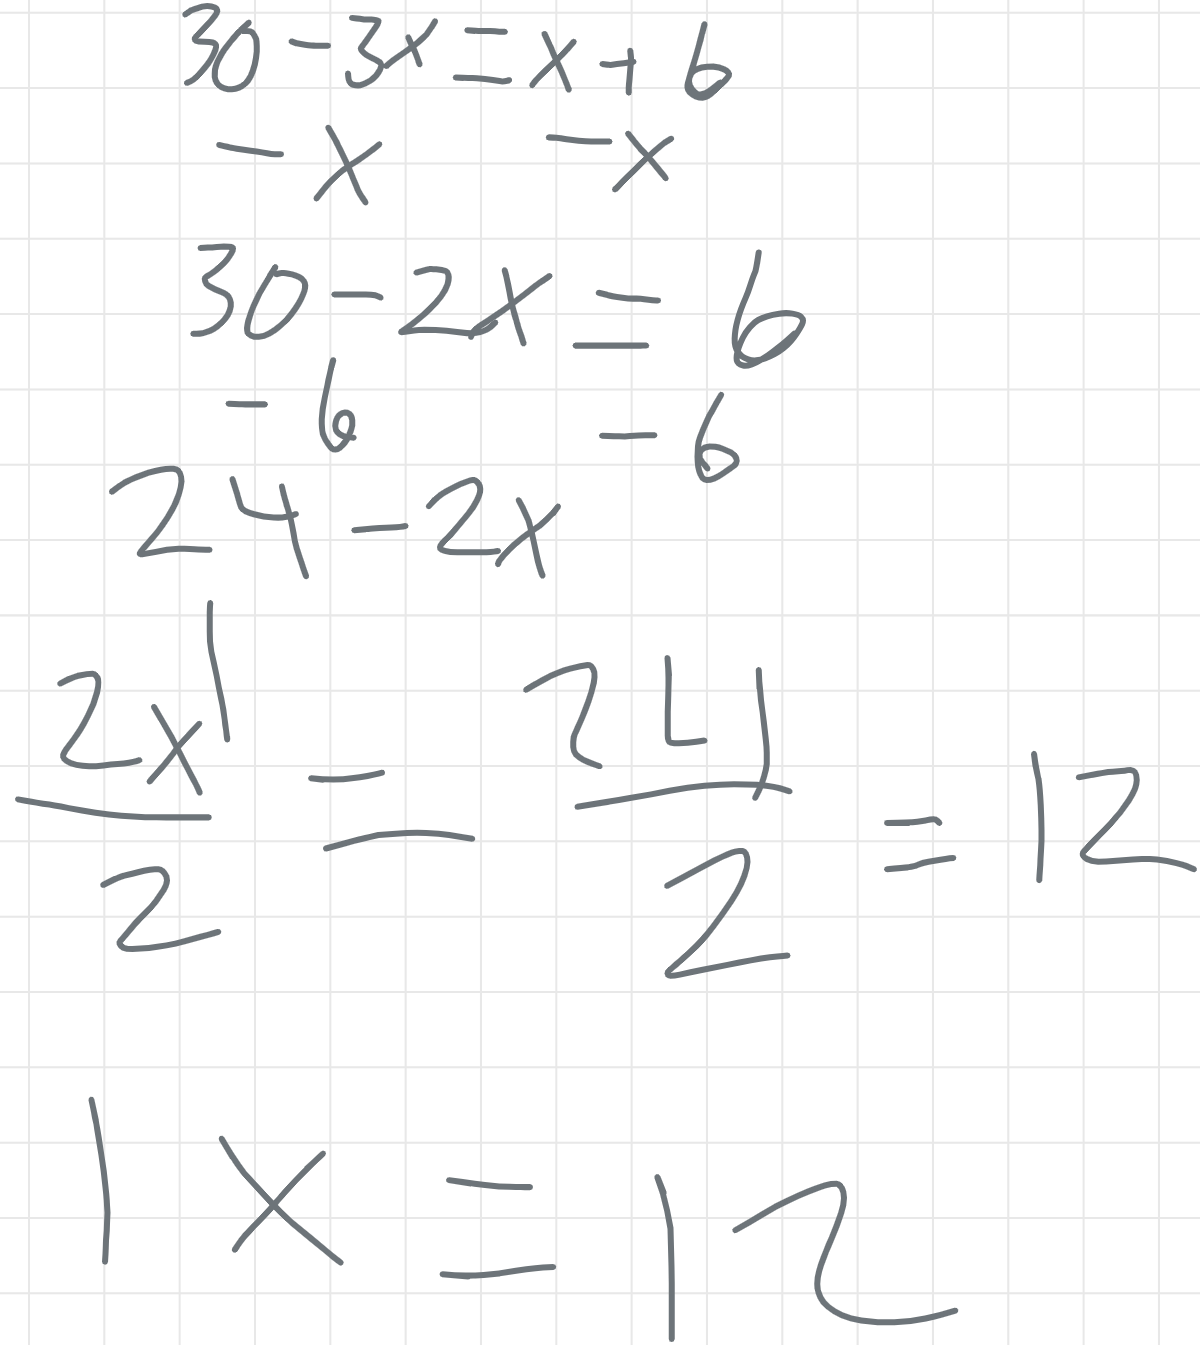 30 - 3x = x + 6
- x - x
30 - 2x = 6
- 6 - 6
24 - 2x
2x^1 / 2 = 24 / 2 = 12
1 x = 12